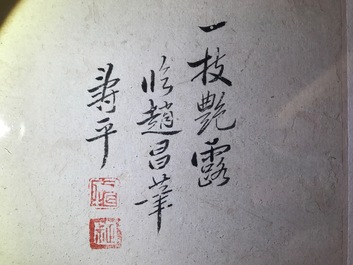 一枝艷露
臨趙昌華
壽平